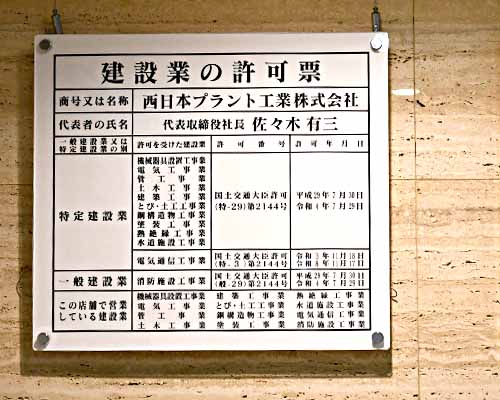 建設業の許可票
商号又は名称 西日本プラント工業株式会社
代表者の氏名 代表取締役社長 佐々木 有三
一般建設業又は特定建設業の別 許可を受けた建設業 許可番号 許可年月日
特定建設業
機械器具設置工事業
電気工事業
管工事業
土木工事業
建築工事業
とび・土工工事業
鋼構造物工事業
塗装工事業
熱絶縁工事業
水道施設工事業
国土交通大臣許可
(特-29)第2144号
平成29年7月30日
令和4年7月29日
電気通信工事業
国土交通大臣許可
(特-3)第2144号
令和3年11月18日
令和8年11月17日
一般建設業
消防施設工事業
国土交通大臣許可
(般-29)第2144号
平成29年7月30日
令和4年7月29日
この店舗で営業
している建設業
機械器具設置工事業 建築工事業 熱絶縁工事業
電気工事業 とび・土工工事業 水道施設工事業
管工事業 鋼構造物工事業 電気通信工事業
土木工事業 塗装工事業 消防施設工事業